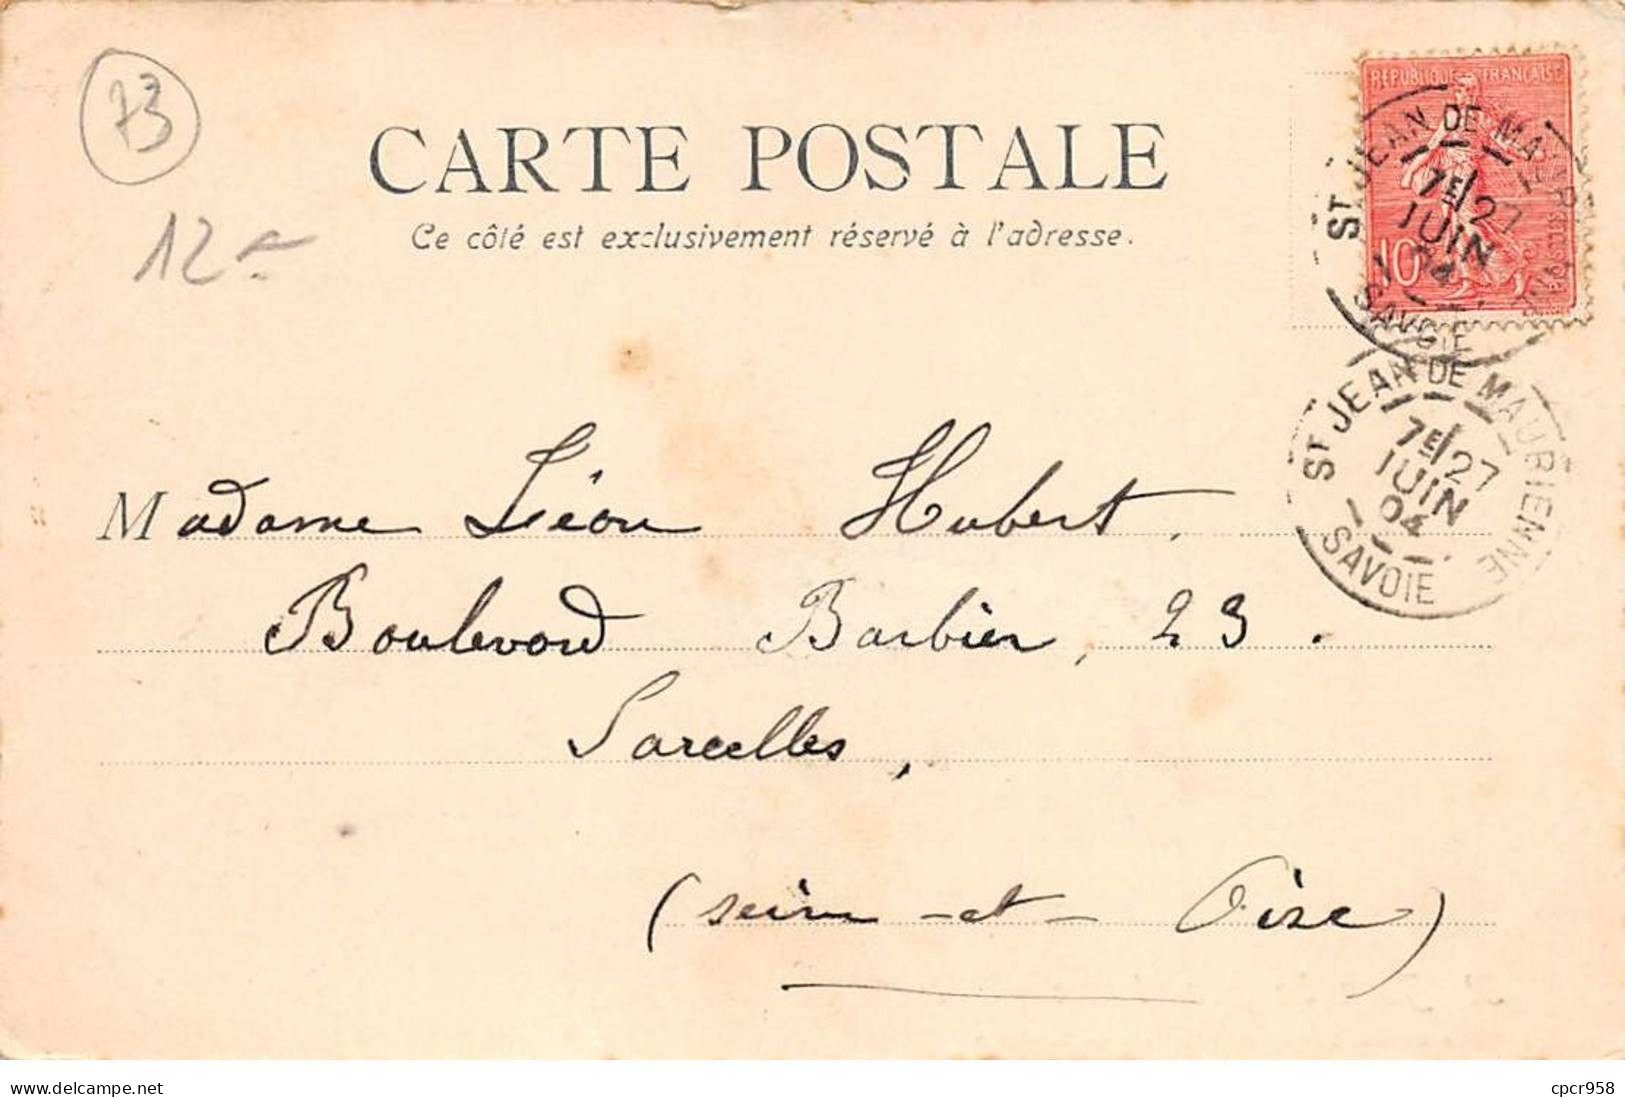 73
12
CARTE POSTALE
Ce côté est exclusivement réservé à l'adresse.
RÉPUBLIQUE FRANÇAISE
10
ST JEAN DE MAURIENNE
7E/27
JUIN
04
SAVOIE
ST JEAN DE MAURIENNE
7E/27
JUIN
04
SAVOIE
Madame Léon Hubert,
Boulevard Barbier, 23.
Sarcelles,
(Seine-et-Oise)
delcampe.net
cpcr958